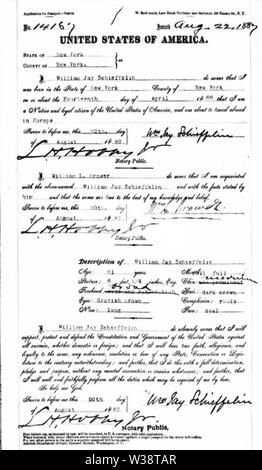 Application for Passport—Native
W. Reid Gould, Law Blank Publisher and Stationer, 168 Nassau St., N. Y.
No. 1415
Issued Aug. 22. 1887
UNITED STATES OF AMERICA.
STATE OF New York
COUNTY OF New York
I, William Jay Schieffelin do swear that I
was born in the State of New York County of New York
on or about the Fourteenth day of April 1866 that I am
a Native and loyal citizen of the United States of America, and am about to travel abroad
in Europe
Sworn to before me, this 20th
day of August 1887
Wm Jay Schieffelin
Notary Public.
I, William L. Brower do swear that I am acquainted
with the above-named William Jay Schieffelin and with the facts stated by
him are true to the best of my knowledge and belief.
Sworn to before me, this 20th
day of August 1887
Notary Public.
Description of William Jay Schieffelin
Age: 21 years
Mouth: full
Stature:
Chin:
Forehead
Hair: dark brown
Eyes: Grayish brown
Complexion: ruddy
Nose: long
Face: oval
I, William Jay Schieffelin do solemnly swear that I will
support, protect and defend the Constitution and Government of the United States against
all enemies, whether domestic or foreign; and that I will bear true faith, allegiance, and
loyalty to the same, any ordinance, resolution or law of any State, Convention or Legis-
lature to the contrary notwithstanding; and further, that I do this with a full determination,
pledge and purpose, without any mental reservation or evasion whatsoever; and further, that
I will well and faithfully perform all the duties which may be required of me by law.
So help me God.
Sworn to before me, this 20th
day of August 1887
Wm Jay Schieffelin
Notary Public.
alamy
Image ID: W38TAR
www.alamy.com